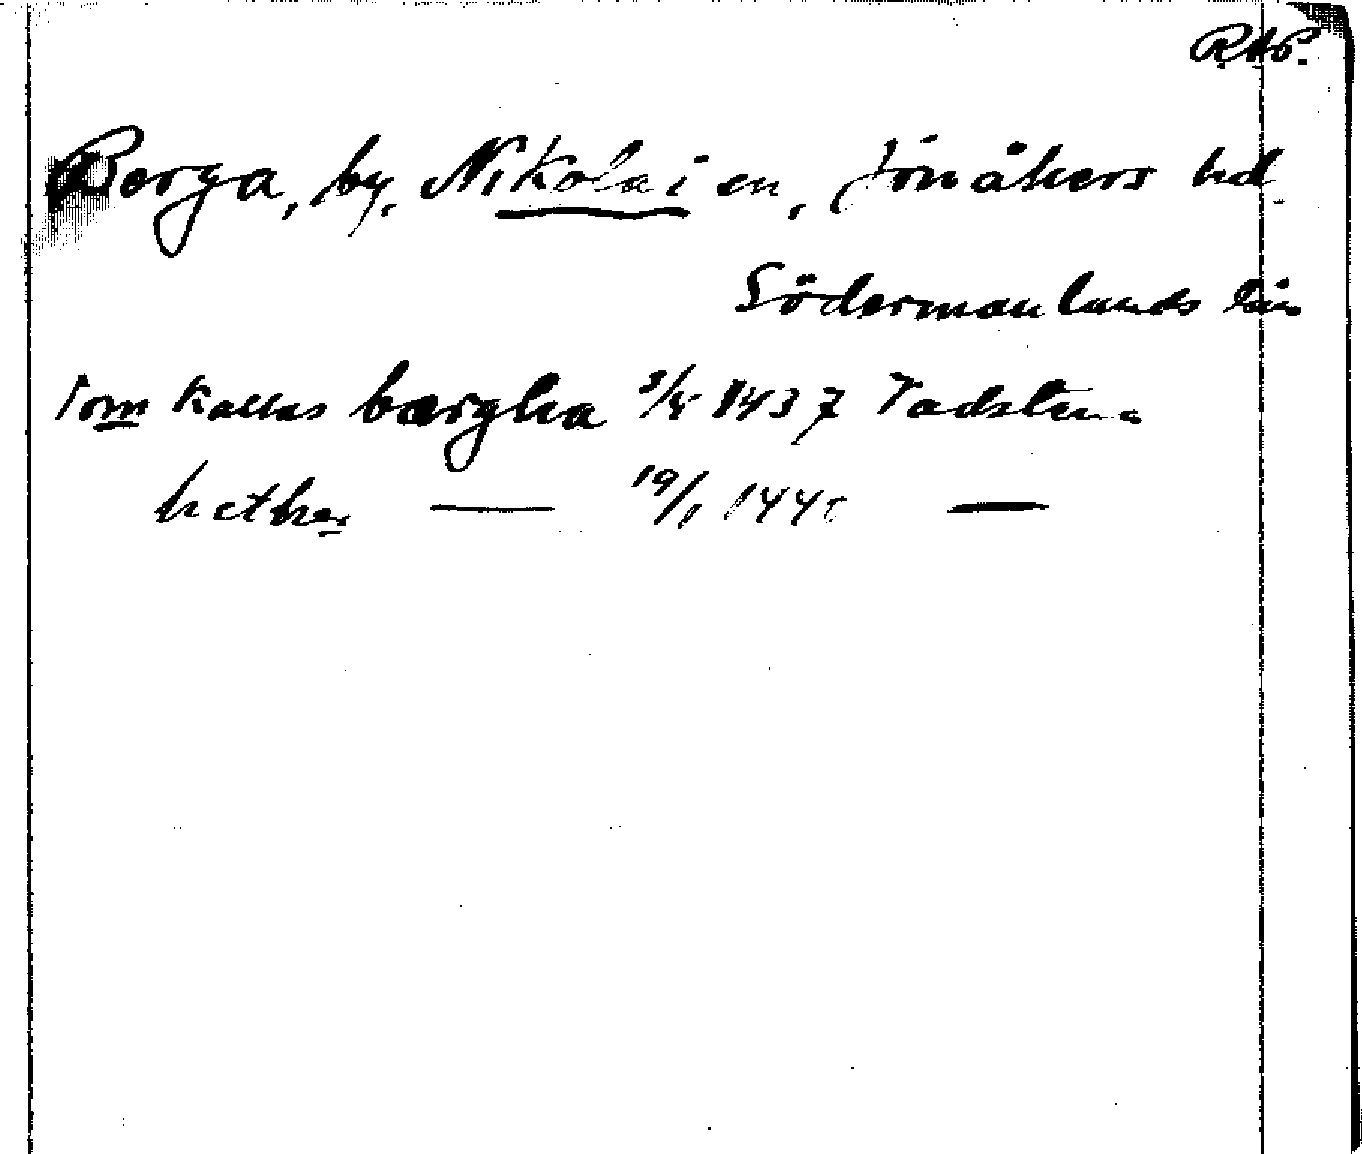 RAP.
Berga, by, Nikolai sn, Jönåkers hd
Södermanlands län
som kallas bærgha 3/5 1437 Vadstena
hether — 19/1 144